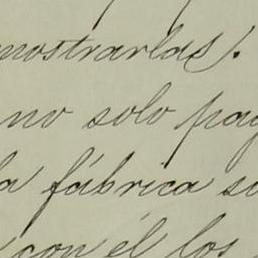 mostrarlas).
no solo pag
la fábrica su
con él los